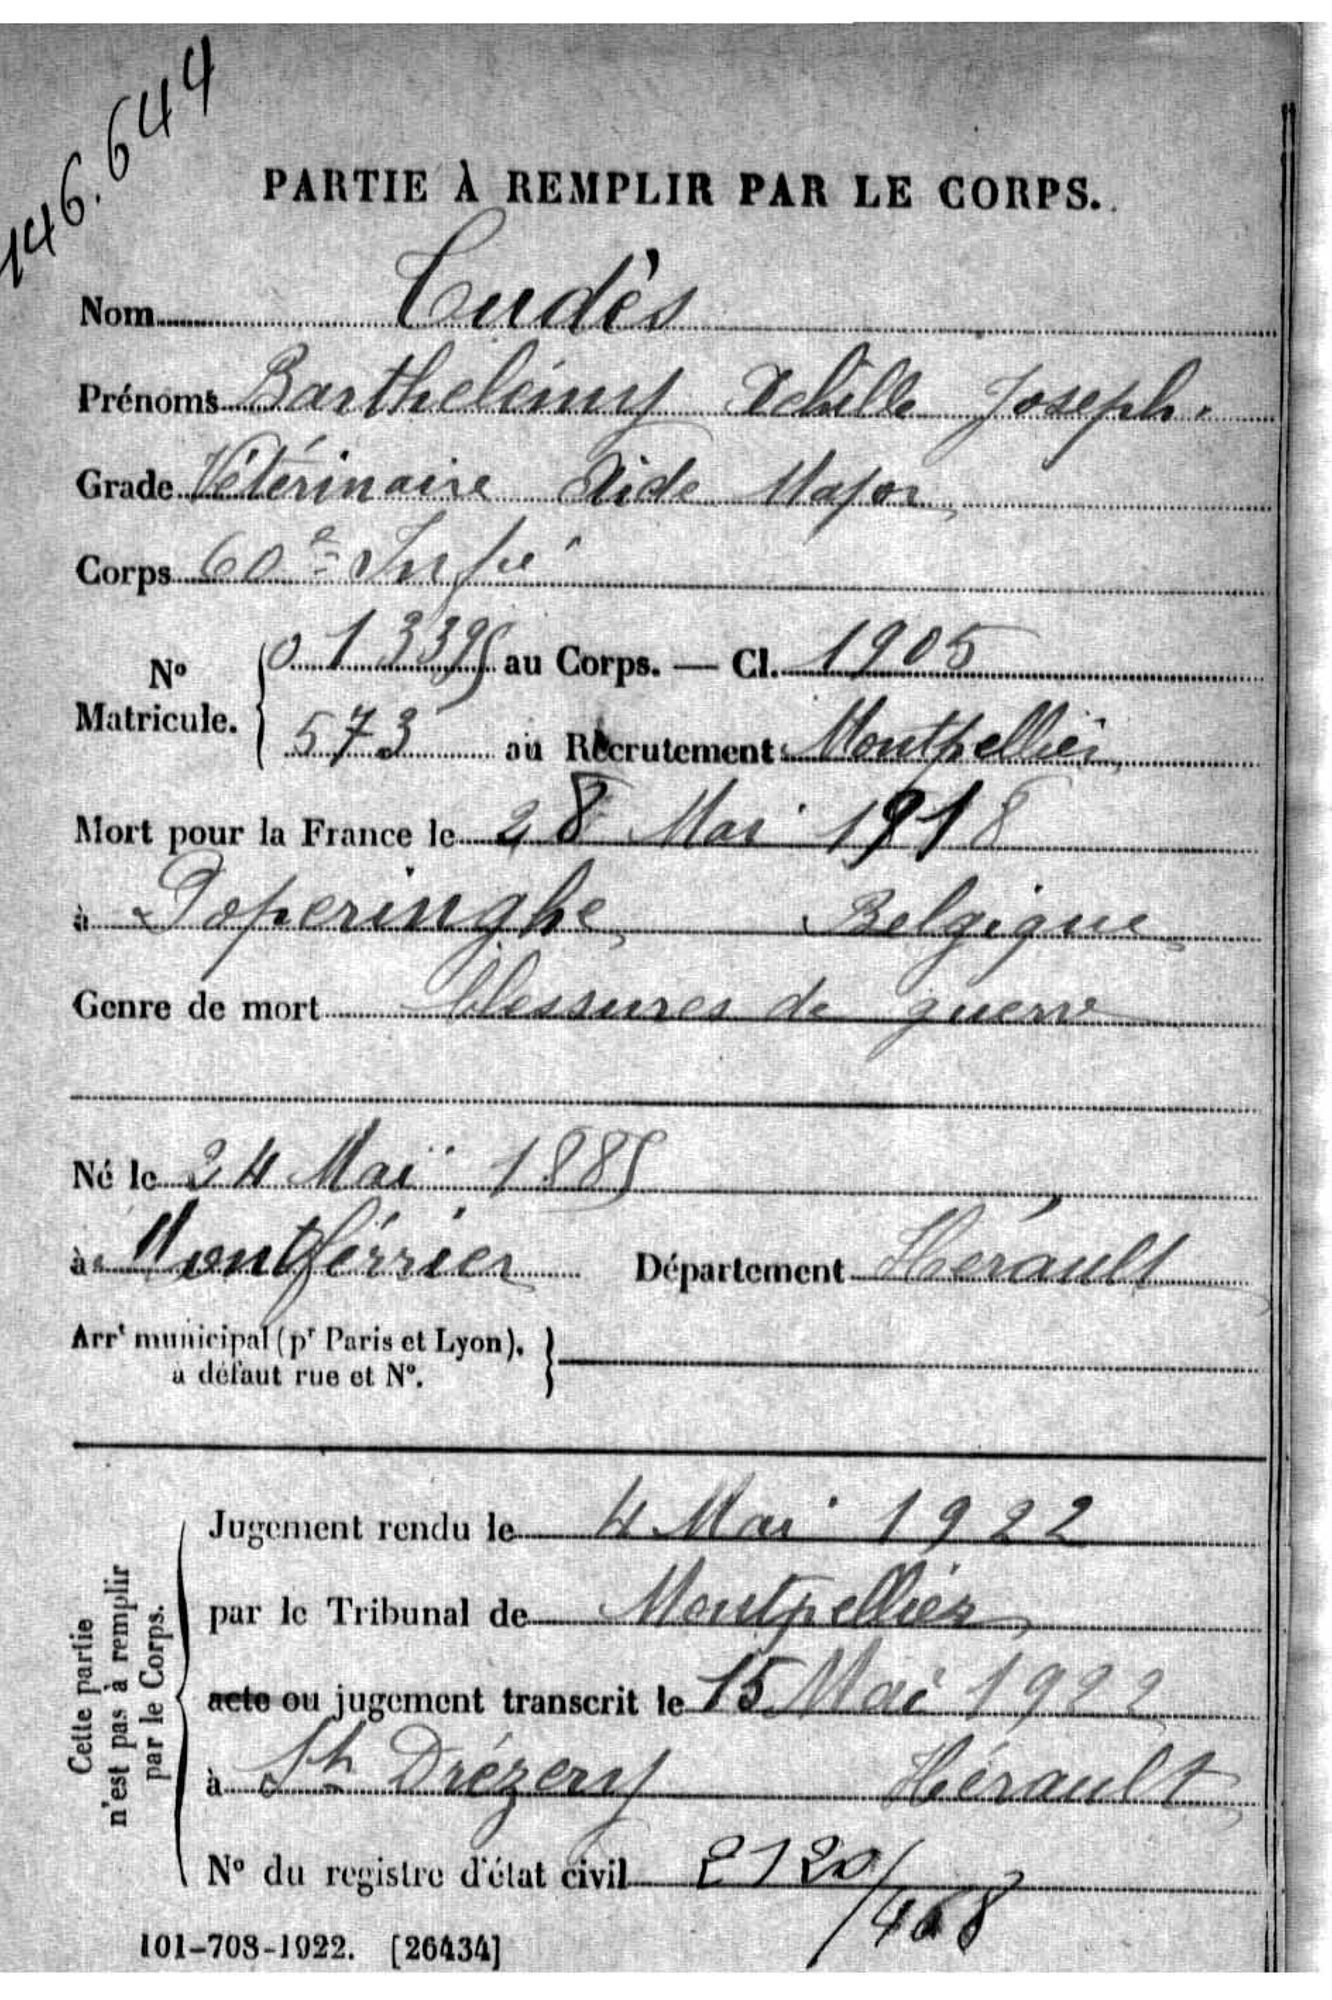 146.644
PARTIE À REMPLIR PAR LE CORPS.
Nom Cudès
Prénoms Barthelémy Achille Joseph.
Grade Vétérinaire Aide Major
Corps 60e Infie
No Matricule. { 013395 au Corps. — Cl. 1905
573 au Recrutement Montpellier
Mort pour la France le 28 Mai 1918
à Poperinghe Belgique
Genre de mort blessures de guerre
Né le 24 Mai 1885
à Montférrier Département Hérault
Arrt municipal (pr Paris et Lyon),
à défaut rue et No.
Cette partie
n'est pas à remplir
par le Corps.
Jugement rendu le 4 Mai 1922
par le Tribunal de Montpellier
acte ou jugement transcrit le 15 Mai 1922
à Sth Drézery Hérault
No du registre d'état civil 2120/468
101-708-1922. [26434]